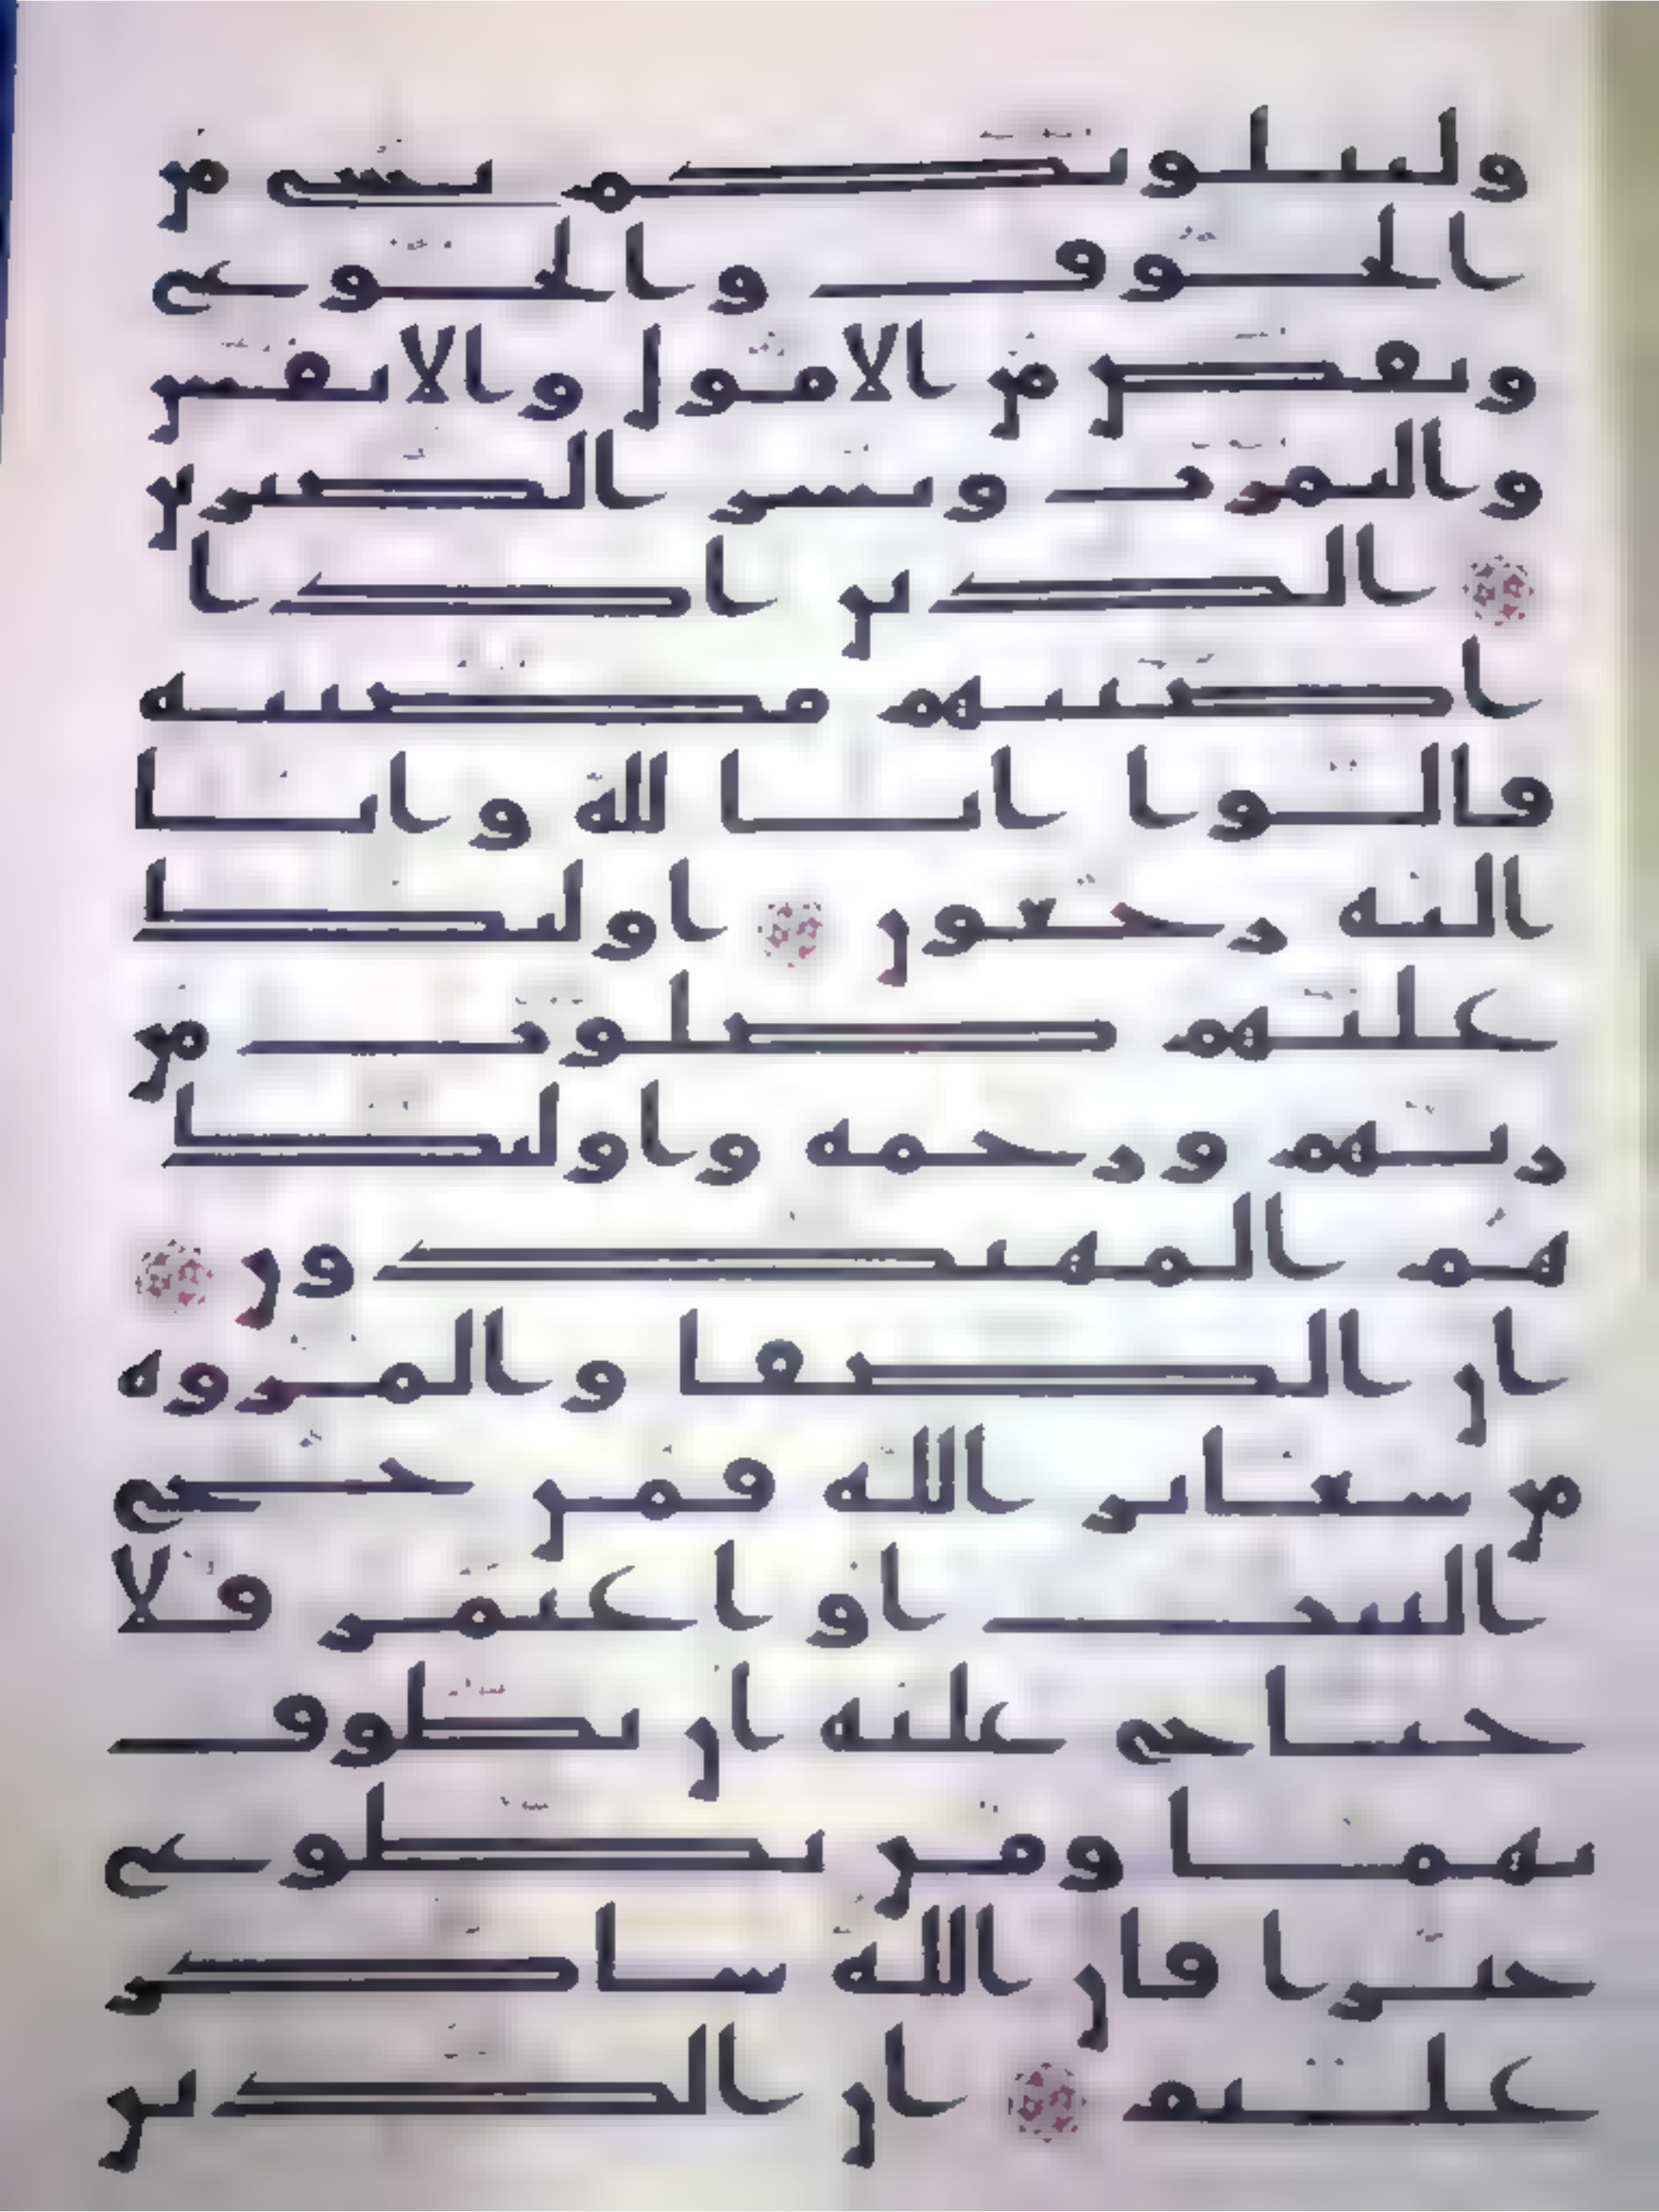 ولنبلونكم بشي من
الخوف والجوع
ونقص من الامول والانفس
والثمرت وبشر الصبرين
الذين اذا
اصبتهم مصيبة
قالوا انا لله وانا
اليه رجعون اولئك
عليهم صلوت من
ربهم ورحمة واولئك
هم المهتدون
ان الصفا والمروة
من شعائر الله فمن حج
البيت او اعتمر فلا
جناح عليه ان يطوف
بهما ومن تطوع
خيرا فان الله شاكر
عليم ان الذين